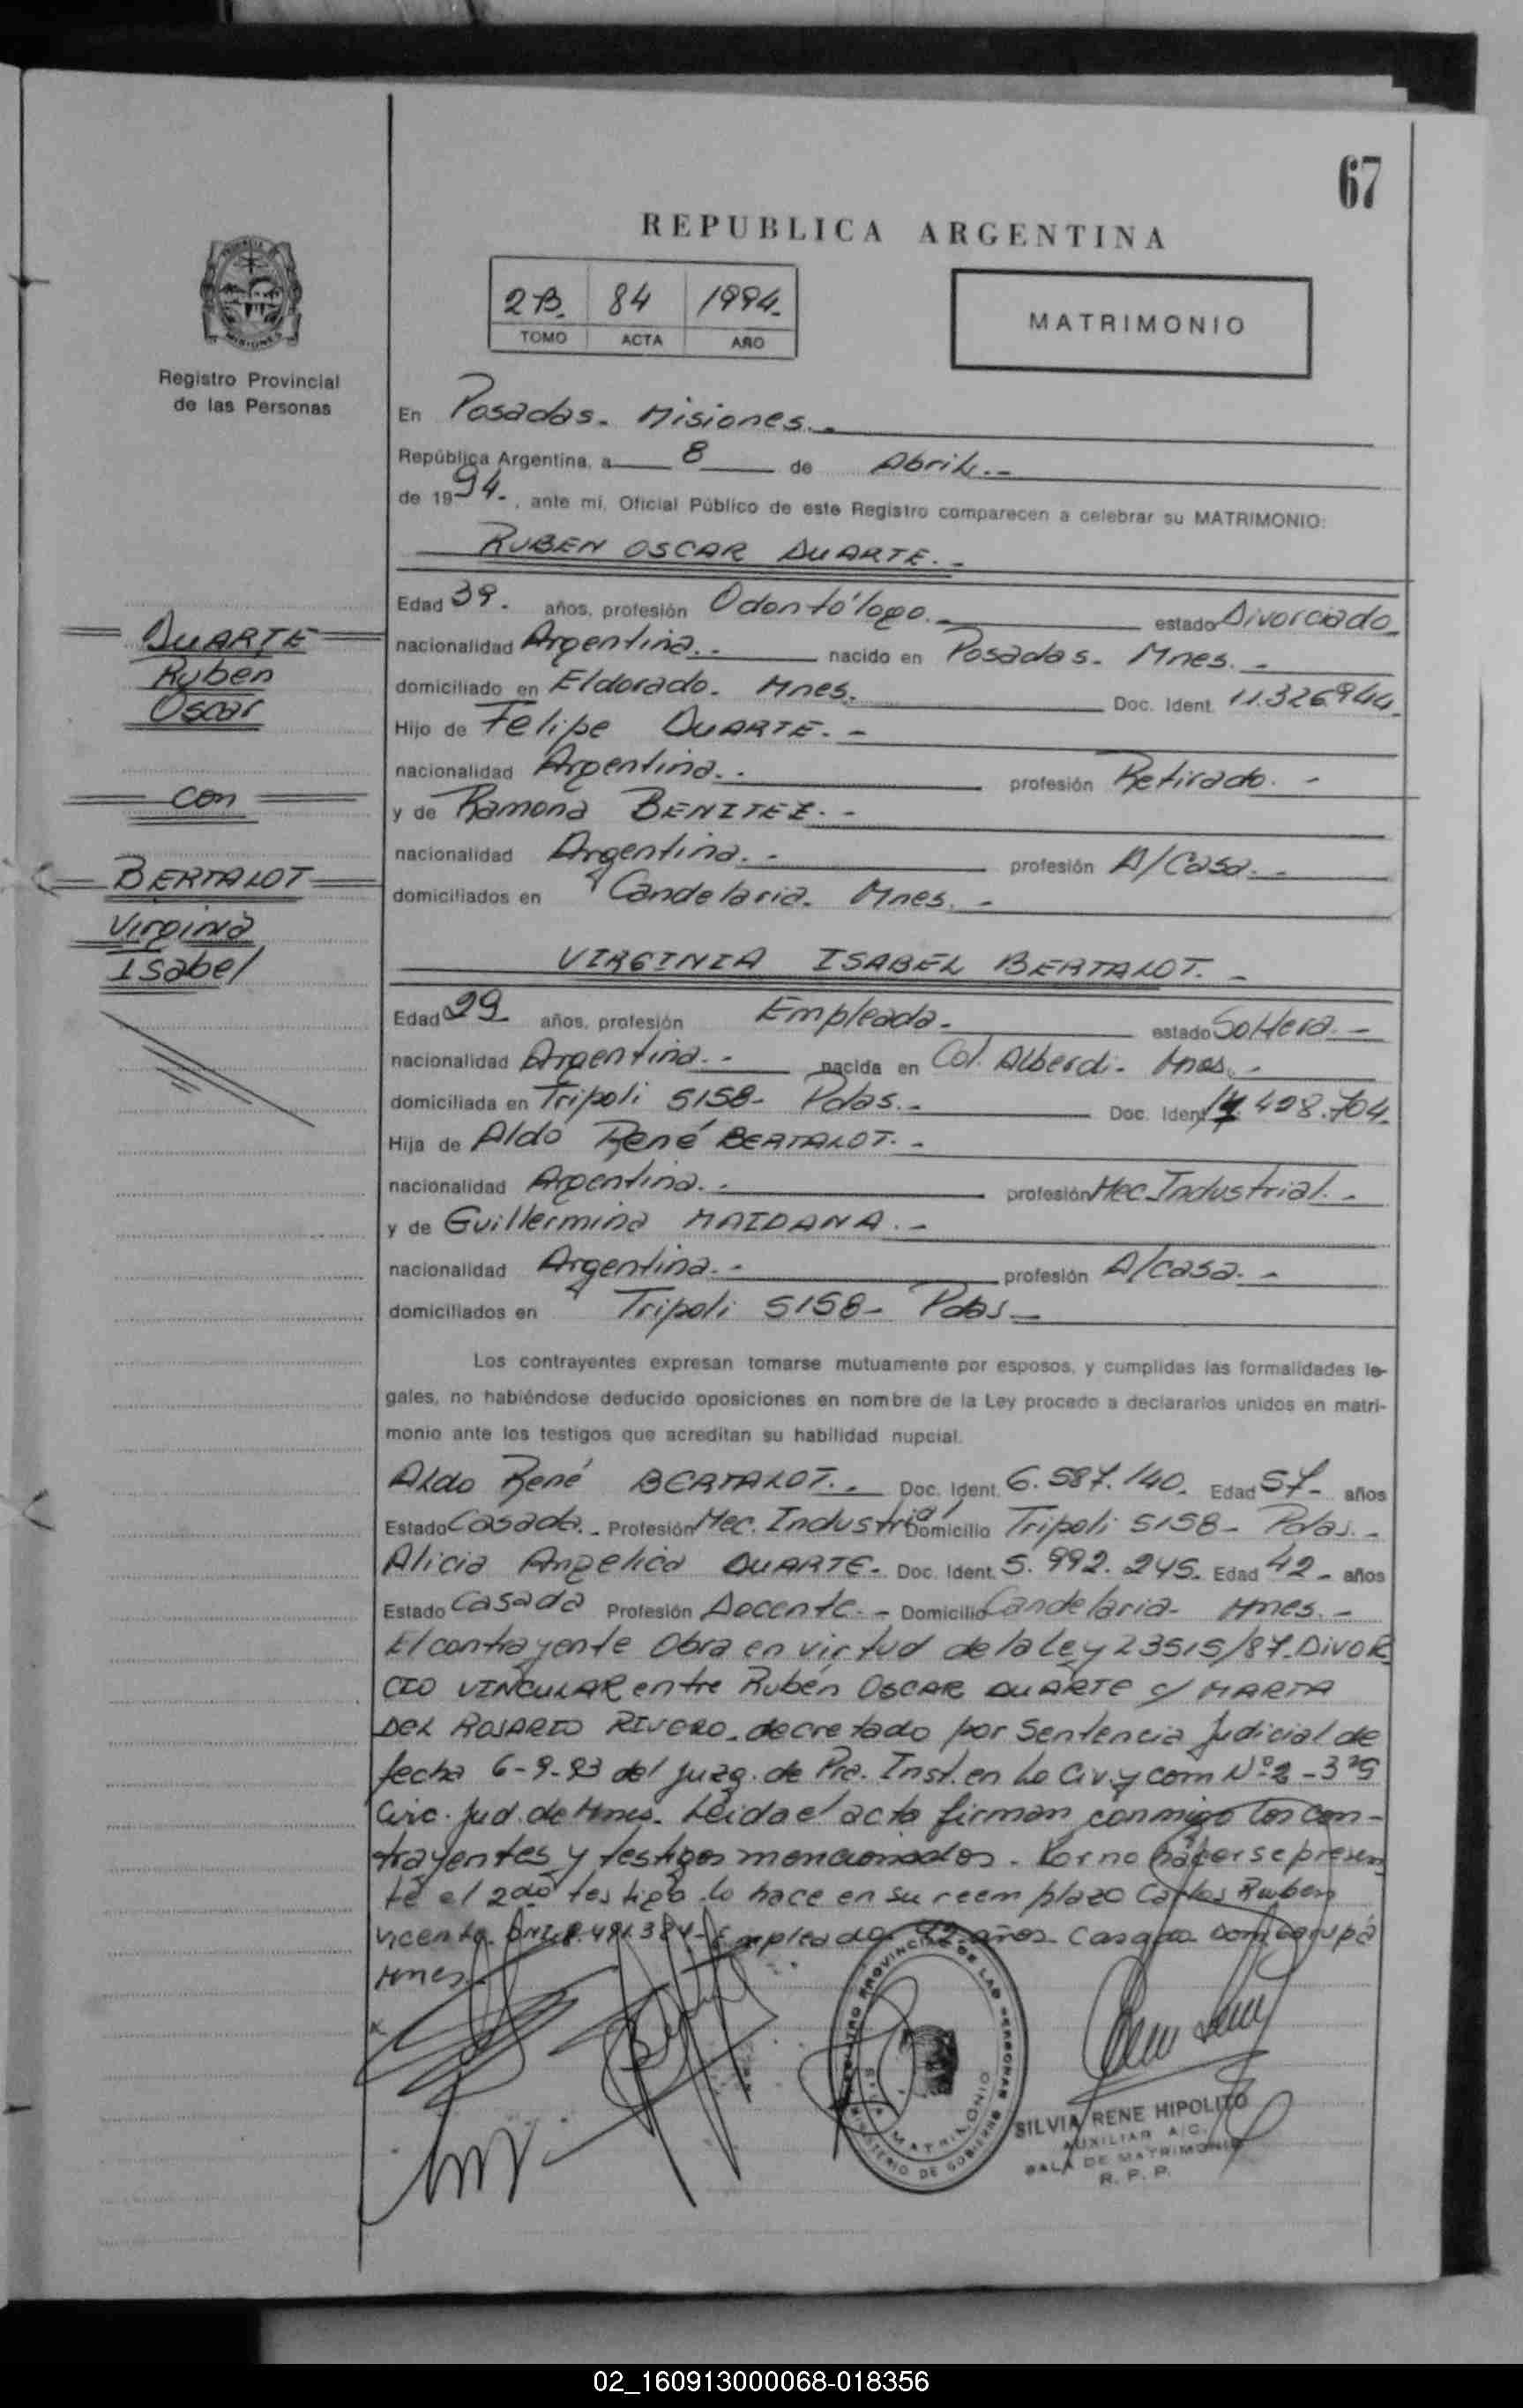 67
REPUBLICA ARGENTINA
2B. 84 1994.
TOMO ACTA AÑO
MATRIMONIO
Registro Provincial
de las Personas
En Posadas. Misiones.-
República Argentina, a 8 de Abril.-
de 1994.-, ante mi, Oficial Público de este Registro comparecen a celebrar su MATRIMONIO:
RUBEN OSCAR DUARTE.-
Edad 39. años, profesión Odontólogo.- estado Divorciado
nacionalidad Argentina.- nacido en Posadas. Mnes.-
domiciliado en Eldorado. Mnes. Doc. Ident. 11.326.944.
Hijo de Felipe DUARTE.-
nacionalidad Argentina.- profesión Retirado.-
y de Ramona BENITEZ.-
nacionalidad Argentina.- profesión A/Casa.-
domiciliados en Candelaria. Mnes.-
DUARTE
Ruben
Oscar
con
BERTALOT
Virginia
Isabel
VIRGINIA ISABEL BERTALOT.-
Edad 29 años, profesión Empleada.- estado Soltera.-
nacionalidad Argentina.- nacida en Col. Alberdi. Mnes.-
domiciliada en Tripoli 5158- Pdas.- Doc. Ident. 408.704.
Hija de Aldo René BERTALOT.-
nacionalidad Argentina.- profesión Mec. Industrial.-
y de Guillermina MAIDANA.-
nacionalidad Argentina.- profesión A/casa.-
domiciliados en Tripoli 5158- Pdas
Los contrayentes expresan tomarse mutuamente por esposos, y cumplidas las formalidades le-
gales, no habiéndose deducido oposiciones en nombre de la Ley procedo a declararlos unidos en matri-
monio ante los testigos que acreditan su habilidad nupcial.
Aldo René BERTALOT.- Doc. Ident. 6.587.140. Edad 57- años
Estado Casado.- Profesión Mec. Industrial Domicilio Tripoli 5158- Pdas.-
Alicia Angelica DUARTE- Doc. Ident. 5.992.245. Edad 42- años
Estado Casada Profesión Docente.- Domicilio Candelaria- Mnes.-
El contrayente Obra en virtud de la Ley 23515/87-DIVOR
CIO VINCULAR entre Rubén OSCAR DUARTE c/ MARTA
DEL ROSARIO RIVERO. decretado por Sentencia Judicial de
fecha 6-9-93 del Juzg. de Pra. Inst. en Lo Civ. y Com Nº 2 -
Circ. Jud. de Mnes. Leida el acto firman conmigo los con-
trayentes y testigos mencionados. Por no hacerse presen
te el 2do testigo lo hace en su reemplazo Carlos Ruben
Vicente. Empleado. 42 años- Casado. Dom Garupá
Mnes
REGISTRO PROVINCIAL DE LAS PERSONAS
MATRIMONIO
MINISTERIO DE GOBIERNO
SILVIA RENE HIPOLITO
AUXILIAR A/C.
SALA DE MATRIMONIO
R. P. P.
02_160913000068-018356